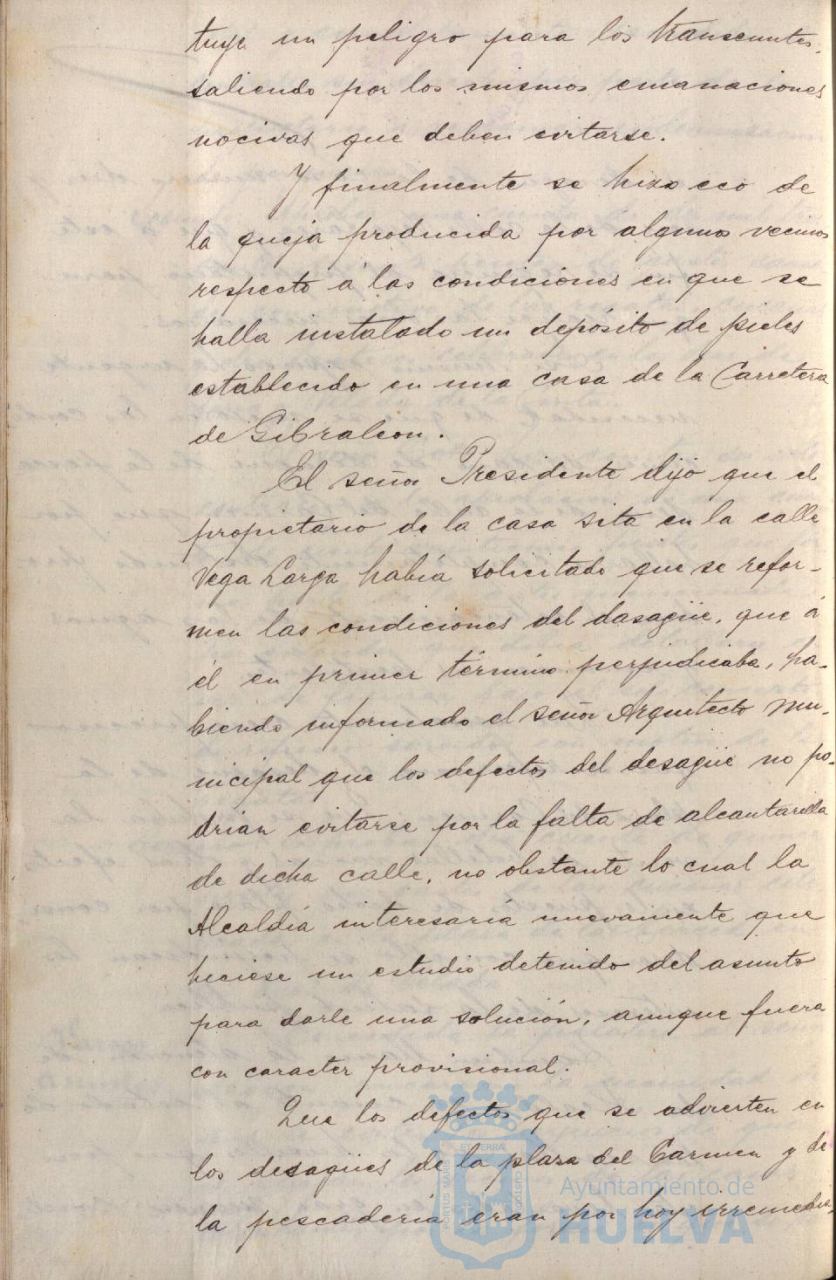 tuye un peligro para los transeuntes,
saliendo por los mismos emanaciones
nocivas que deben evitarse.
Y finalmente se hizo eco de
la queja producida por algunos vecinos
respecto á las condiciones en que se
halla instalado un depósito de pieles
establecido en una casa de la Carretera
de Gibraleon.
El señor Presidente dijo que el
propietario de la casa sita en la calle
Vega Larga había solicitado que se refor-
men las condiciones del dasagüe, que á
él en primer término perjudicaba, ha-
biendo informado el señor Arquitecto Mu-
nicipal que los defectos del desagüe no po-
drian evitarse por la falta de alcantarilla
de dicha calle, no obstante lo cual la
Alcaldía interesaría nuevamente que
hiciese un estudio detenido del asunto
para darle una solución, aunque fuera
con caracter provisional.
Que los defectos que se advierten en
los desagües de la plaza del Carmen y de
la pescadería eran por hoy irremedia-
Ayuntamiento de
HUELVA